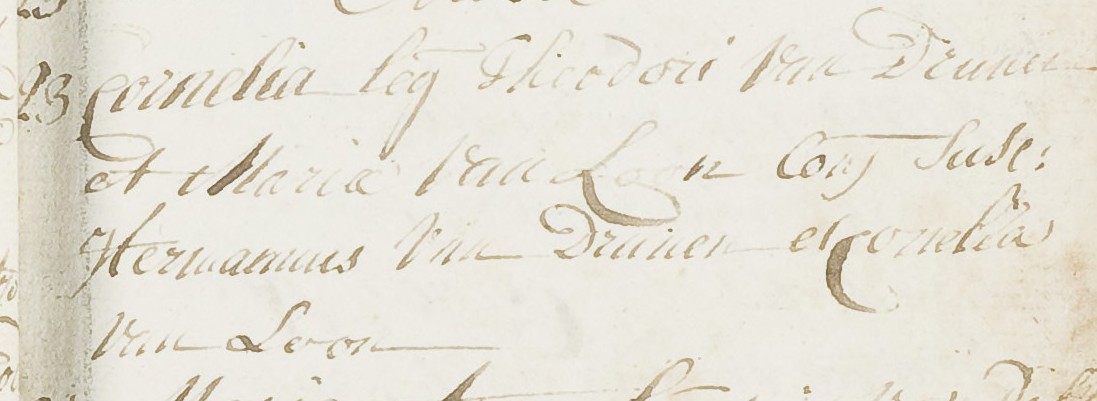 23 Cornelia leg Theodori Van Drunen
et Mariæ Van Loon Conj Susc:
Hermannus Van Drunen et Cornelia
Van Loon